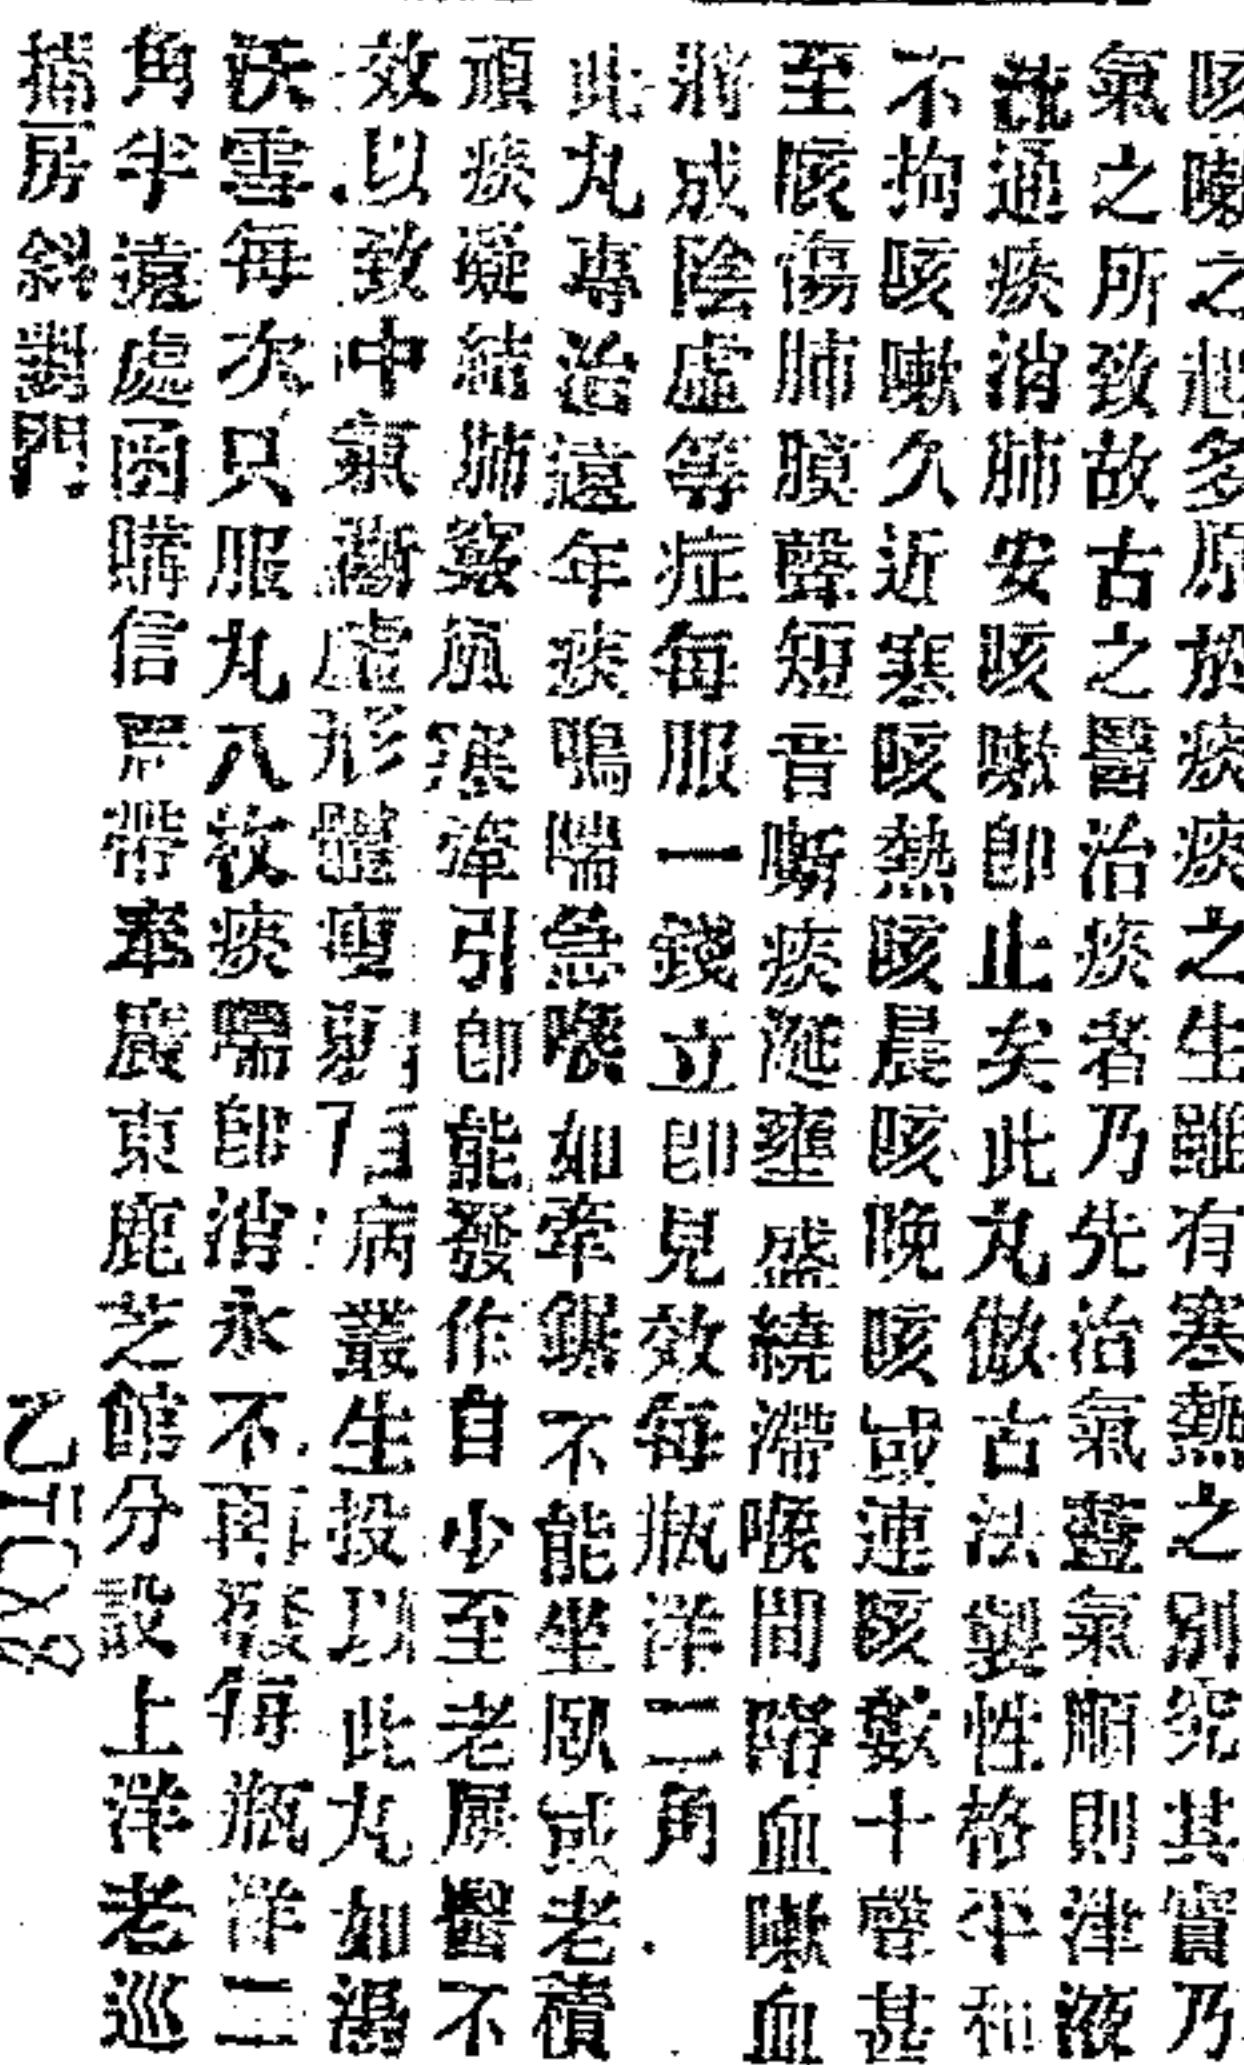 咳嗽之起多原於痰痰之生雖有寒熱之別究其實乃
氣之所致故古之醫治痰者乃先治氣蓋氣順則津液
流通痰消肺安咳嗽即止矣此丸倣古法製性格平和
不拘咳嗽久近寒咳熱咳晨咳晚咳或連咳數十聲甚
至咳傷肺膜聲短音嘶痰涎壅盛繞滯喉間咯血嗽血
將成陰虛等症每服一錢立即見效每瓶洋二角
此丸專治遠年痰鳴喘急喉如牽鋸不能坐臥或老積
頑痰凝結肺竅風寒牽引即能發作自少至老屢醫不
效以致中氣漸虛形體瘦弱百病叢生投以此丸如湯
沃雪每次只服丸八枚痰喘即消永不再發每瓶洋二
角半遠處函購信局帶奉廣東鹿芝館分設上洋老巡
捕房斜對門
乙